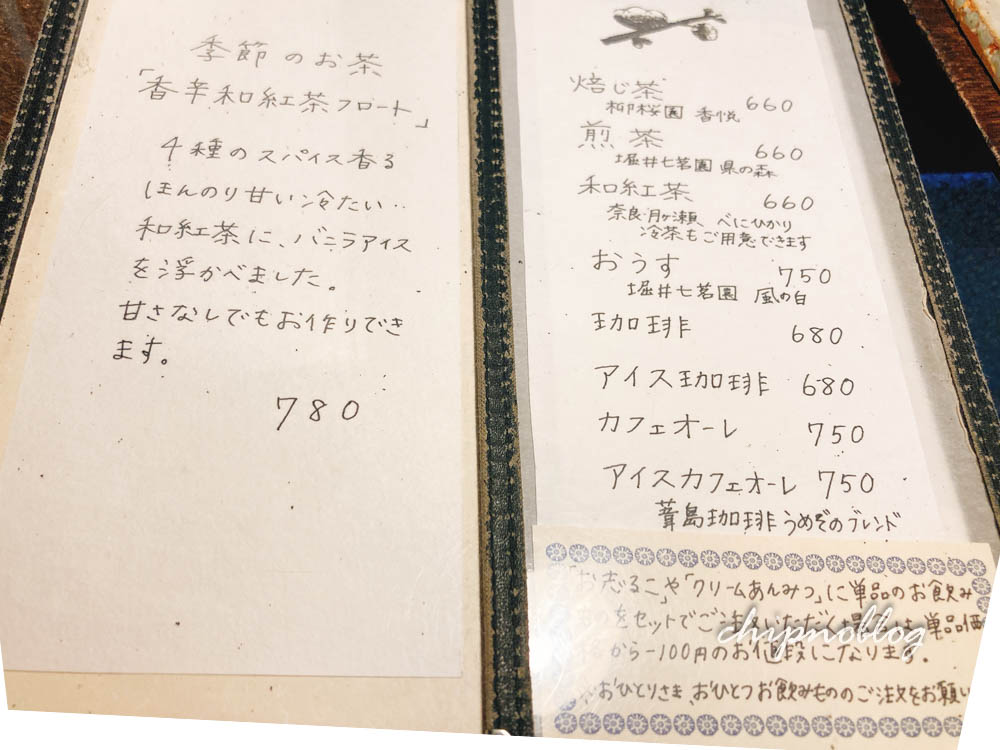 季節のお茶
「香辛和紅茶フロート」
4種のスパイス香る
ほんのり甘い冷たい‥
和紅茶に、バニラアイス
を浮かべました。
甘さなしでもお作りでき
ます。
780
焙じ茶 660
柳桜園 香悦
煎茶 660
堀井七茗園 県の森
和紅茶 660
奈良・月ヶ瀬 べにひかり
冷茶もご用意できます
おうす 750
堀井七茗園 風の白
珈琲 680
アイス珈琲 680
カフェオーレ 750
アイスカフェオーレ 750
葺島珈琲うめぞのブレンド
「お志るこ」や「クリームあんみつ」に単品のお飲み
ものをセットでご注文いただく場合は単品価
から-100円のお値段になります。
おひとりさま、おひとつお飲みもののご注文をお願い
chipnoblog